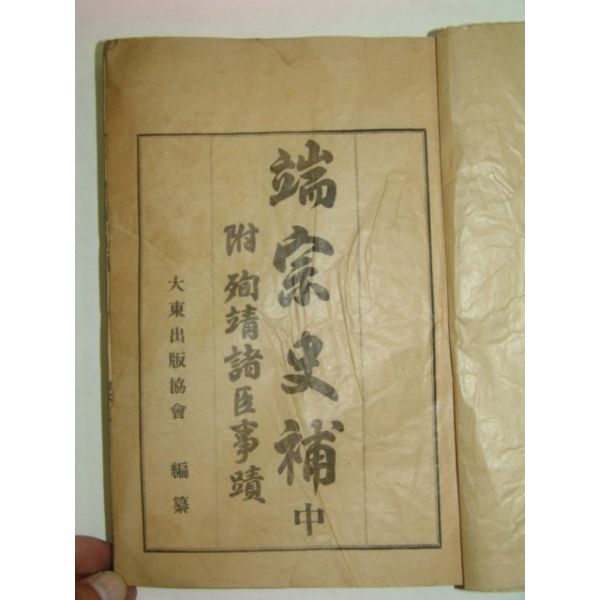 端宗史補 中
附 殉靖諸臣事蹟
大東出版協會 編纂